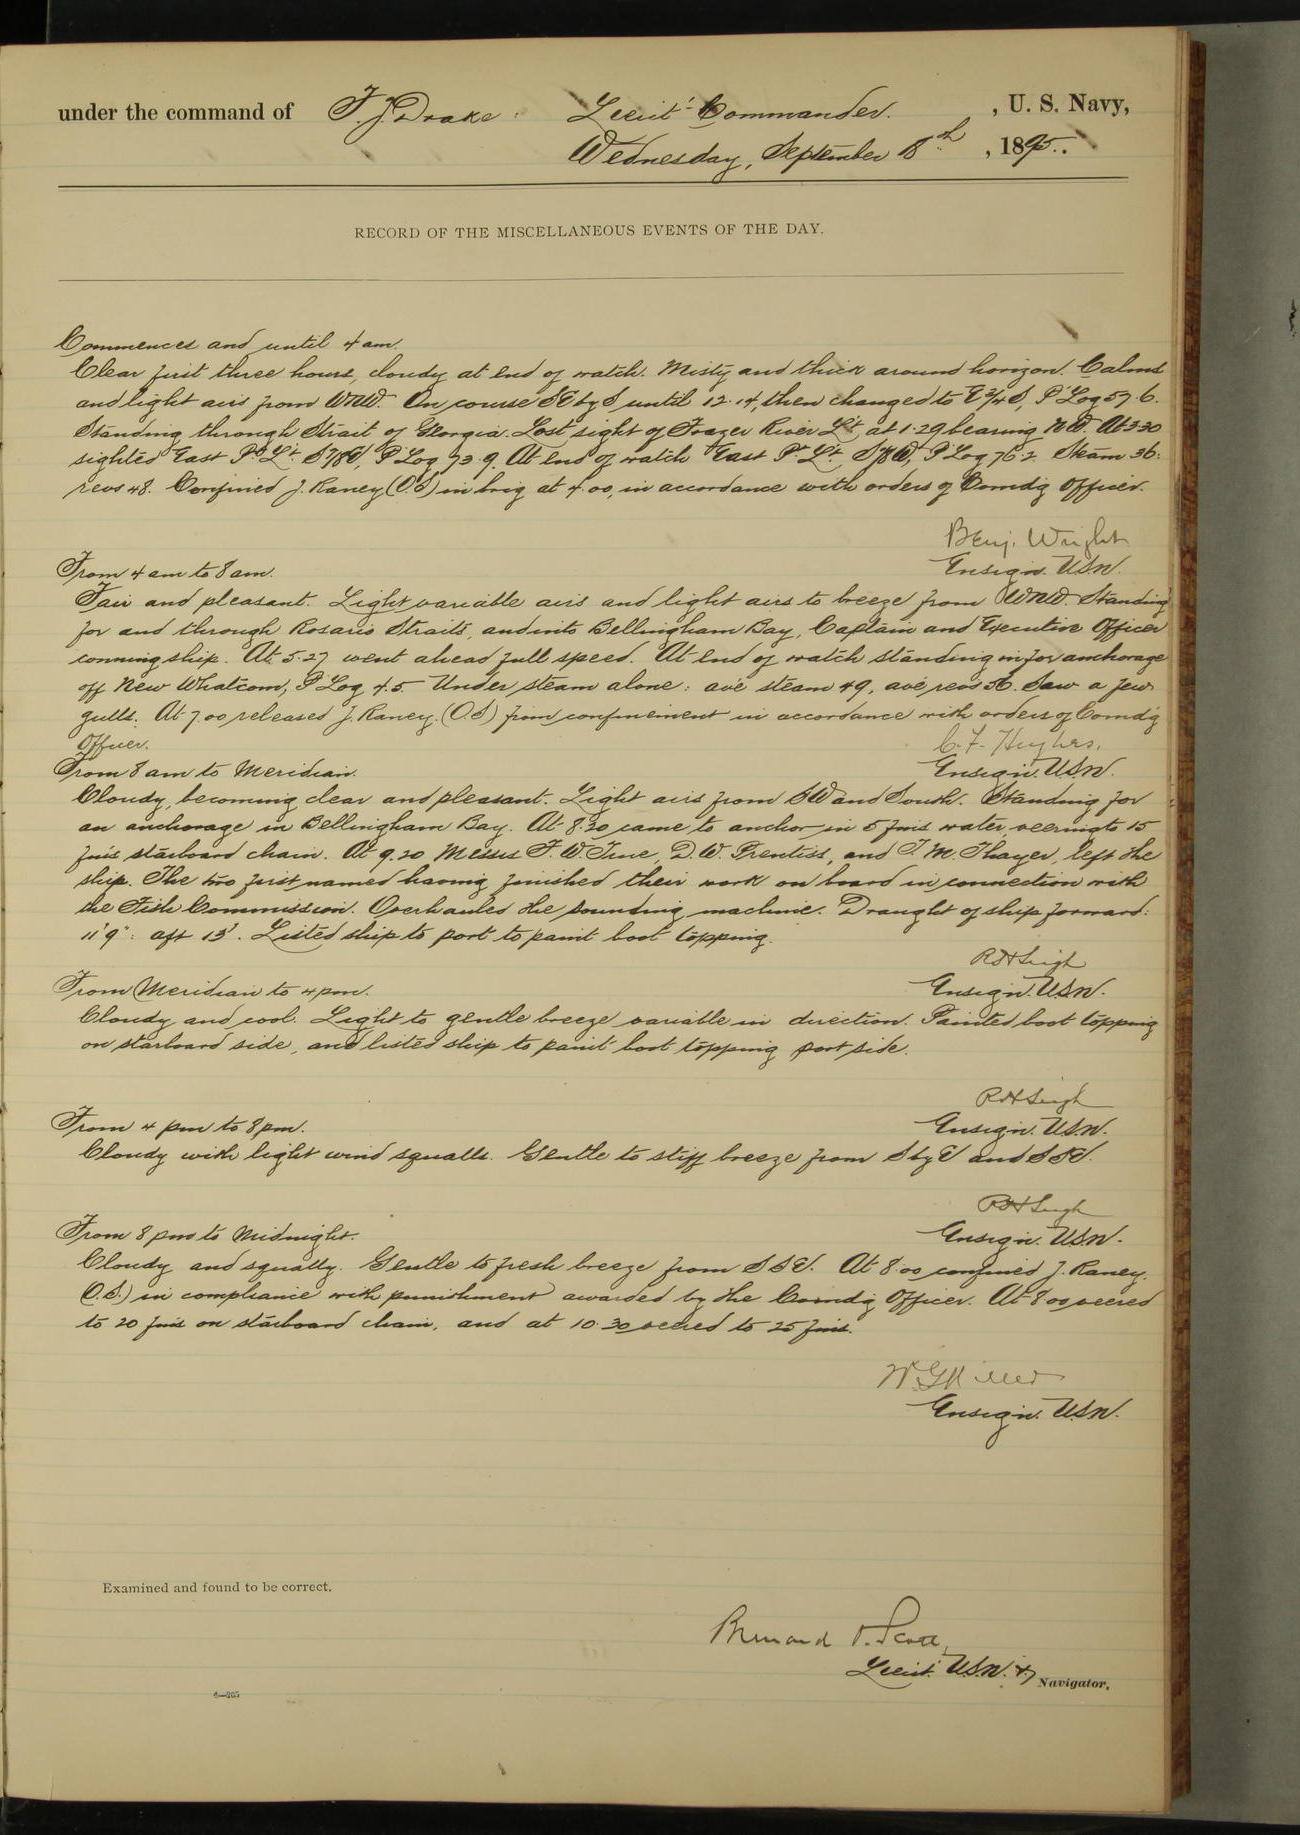 under the command of F. J. Drake Lieut-Commander. , U. S. Navy,
Wednesday, September 18th , 1895.
RECORD OF THE MISCELLANEOUS EVENTS OF THE DAY.
Commences and until 4 am.
Clear first three hours, cloudy at end of watch. Misty and thick around horizon. Calms
and light airs from WNW. On course SE by S until 12.14, then changed to E 3/4 S, P Log 57.6.
Standing through Strait of Georgia. Lost sight of Frazer River Lt. at 1.29 bearing NW. At 3.30
sighted East Pt. Lt. P Log 73.9. At end of watch East Pt. Lt. P Log 76.2 Steam 36:
revs 48. Confined J. Raney (O.S) in brig at 4.00, in accordance with orders of Comdg Officer.
Benj. Wright
Ensign. USN.
From 4 am to 8 am.
Fair and pleasant. Light variable airs and light airs to breeze from WNW. Standing
for and through Rosario Straits, and into Bellingham Bay, Captain and Executive Officer
conning ship. At 5.27 went ahead full speed. At end of watch standing in for anchorage
off New Whatcom, P Log 4.5. Under steam alone: ave steam 49, ave revs 56. Saw a few
gulls. At 7.00 released J. Raney. (O.S) from confinement in accordance with orders of Comdg
Officer.
C. F. Hughes.
Ensign. USN.
From 8 am to Meridian.
Cloudy, becoming clear and pleasant. Light airs from SW and South. Standing for
an anchorage in Bellingham Bay. At 8.20 came to anchor in 5 fms water, veering to 15
fms starboard chain. At 9.20 Messrs F. W. True, D. W. Prentiss, and T. M. Thayer, left the
ship. The two first named having finished their work on board in connection with
the Fish Commission. Overhauled the sounding machine. Draught of ship forward:
11'9": aft 13'. Listed ship to port to paint boot topping.
R H Leigh
Ensign. USN.
From Meridian to 4 pm.
Cloudy and cool. Light to gentle breeze variable in direction. Painted boot topping
on starboard side, and listed ship to paint boot topping port side.
R H Leigh
Ensign. USN.
From 4 pm to 8 pm.
Cloudy with light wind squalls. Gentle to stiff breeze from S by E and SSE.
R H Leigh
Ensign. USN.
From 8 pm to Midnight.
Cloudy and squally. Gentle to fresh breeze from SSE. At 8.00 confined J. Raney.
(O.S.) in compliance with punishment awarded by the Comdg Officer. At 8.00 veered
to 20 fms on starboard chain, and at 10.30 veered to 25 fms.
W. G. Miller
Ensign. USN.
Examined and found to be correct.
Bernard O. Scott,
Lieut. U.S.N. & Navigator.